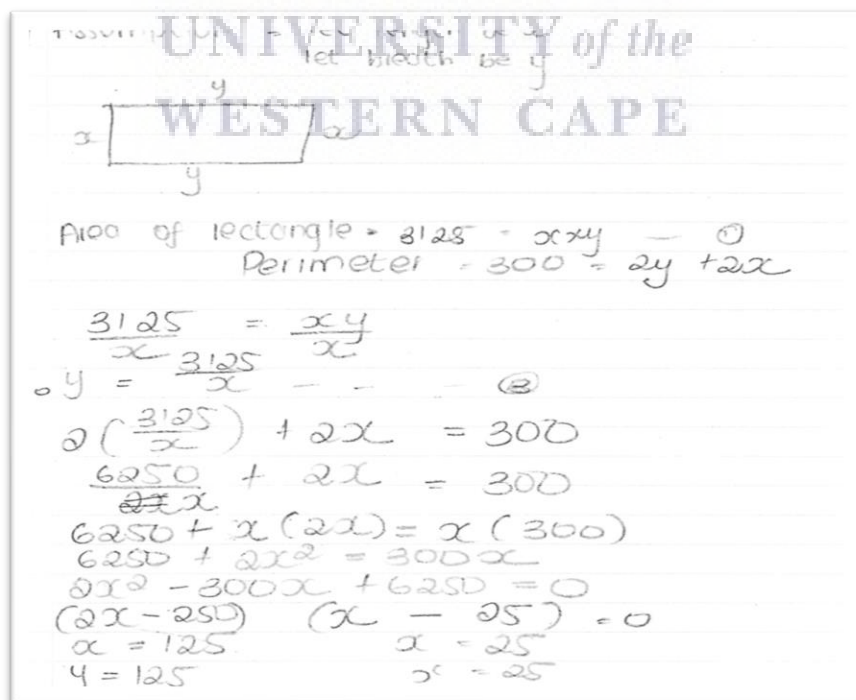 UNIVERSITY of the
let breadth be y
WESTERN CAPE
y
x
x
y
Area of rectangle = 3125 = x×y — ①
Perimeter = 300 = 2y + 2x
3125/x = xy/x
y = 3125/x - - - ②
2(3125/x) + 2x = 300
6250/x + 2x = 300
6250 + x(2x) = x(300)
6250 + 2x² = 300x
2x² - 300x + 6250 = 0
(2x - 250) (x - 25) = 0
x = 125 x = 25
y = 125 x = 25